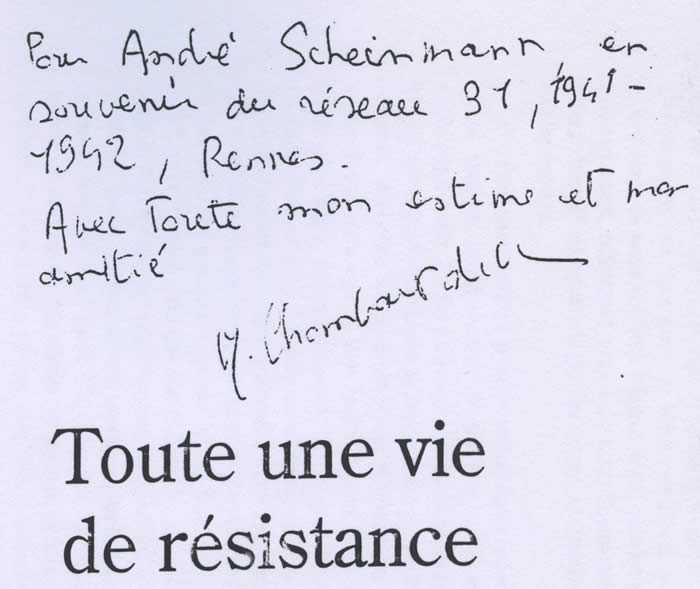 Pour André Scheinmann, en
souvenir du réseau 31, 1941-
1942, Rennes.
Avec Toute mon estime et mon
amitié
Toute une vie
de résistance